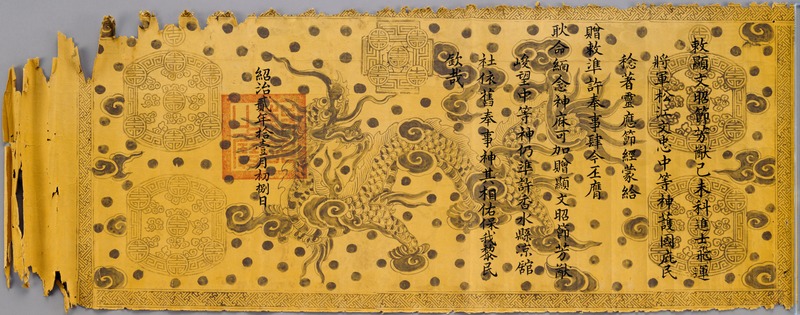 敕顯文昭節芳猷己未科進士飛運
將軍松江文忠中等神護國庇民
稔著靈應節經蒙給
贈敕準許奉事肆今丕膺
耿命緬念神庥可加贈顯文昭節芳猷
峻望中等神仍準許香水縣館
社依舊奉事神其相佑保我黎民
欽哉
紹治貳年拾壹月初捌日